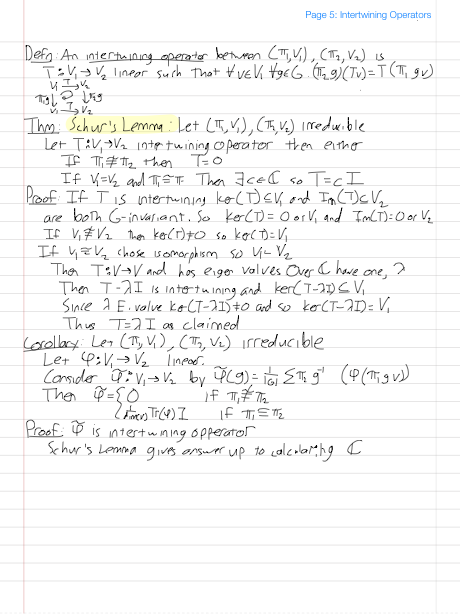 Page 5: Intertwining Operators
Defn: An intertwining operator between (π₁,V₁), (π₂,V₂) is
T: V₁ → V₂ linear such that ∀v∈V₁ ∀g∈G (π₂g)(Tv) = T(π₁gv)
V₁ T→ V₂
π₁g↓ ↓π₂g
V₁ T→ V₂
Thm: Schur's Lemma: Let (π₁,V₁), (π₂,V₂) irreducible
Let T: V₁→V₂ intertwining operator then either
If π₁≇π₂ then T=0
If V₁=V₂ and π₁≅π Then ∃c∈ℂ so T=cI
Proof: If T is intertwining ker(T)⊆V₁ and Im(T)⊆V₂
are both G-invariant. So ker(T)=0 or V₁ and Im(T)=0 or V₂
If V₁≇V₂ then ker(T)≠0 so ker(T)=V₁
If V₁≅V₂ chose isomorphism so V₁=V₂
Then T: V→V and has eigen values Over ℂ have one, λ
Then T-λI is intertwining and ker(T-λI)⊆V₁
Since λ E.value ker(T-λI)≠0 and so ker(T-λI)=V₁
Thus T=λI as claimed
Corollary: Let (π₁,V₁), (π₂,V₂) irreducible
Let φ: V₁→V₂ linear.
Consider φ̃: V₁→V₂ by φ̃(g)=1/|G| Σπ₂g⁻¹ (φ(π₁gv))
Then φ̃={0 if π₁≇π₂
Tr(φ)I if π₁≅π₂
Proof: φ̃ is intertwining opperator
Schur's Lemma gives answer up to calculating ℂ